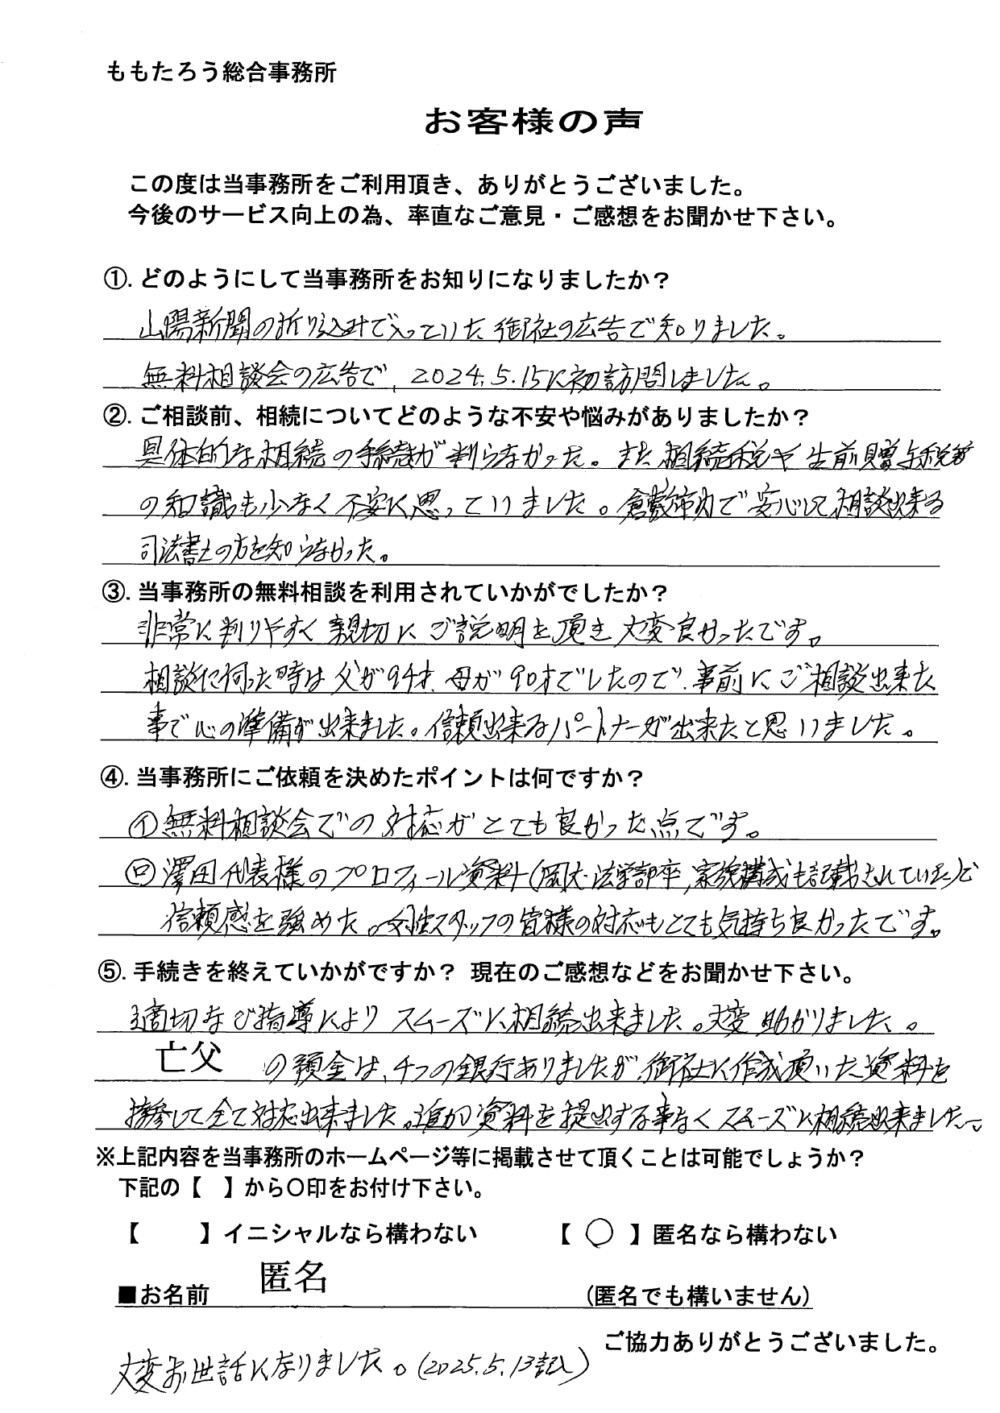 ももたろう総合事務所
お客様の声
この度は当事務所をご利用頂き、ありがとうございました。
今後のサービス向上の為、率直なご意見・ご感想をお聞かせ下さい。
①. どのようにして当事務所をお知りになりましたか？
山陽新聞の折り込みで入っていた御社の広告で知りました。
無料相談会の広告で、2024.5.15に初訪問しました。
②. ご相談前、相続についてどのような不安や悩みがありましたか？
具体的な相続の手続きが判らなかった。また相続税や生前贈与税等
の知識も少なく不安に思っていました。倉敷市内で安心して相談出来る
司法書士の方を知らなかった。
③. 当事務所の無料相談を利用されていかがでしたか？
非常に判りやすく親切にご説明を頂き大変良かったです。
相談に伺った時は父が94才、母が90才でしたので、事前にご相談出来た
事で心の準備が出来ました。信頼出来るパートナーが出来たと思いました。
④. 当事務所にご依頼を決めたポイントは何ですか？
㋑無料相談会での対応がとても良かった点です。
㋺澤田代表様のプロフィール資料(岡大法学部卒、家族構成も記載されていた)など
信頼感を強めた。女性スタッフの皆様の対応もとても気持ち良かったです。
⑤. 手続きを終えていかがですか？ 現在のご感想などをお聞かせ下さい。
適切なご指導によりスムーズに相続出来ました。大変助かりました。
亡父 の預金は、4つの銀行ありましたが、御社に作成頂いた資料を
持参して全て対応出来ました。追加資料を提出する事なくスムーズに相続出来ました。
※上記内容を当事務所のホームページ等に掲載させて頂くことは可能でしょうか？
下記の【 】から〇印をお付け下さい。
【 】イニシャルなら構わない 【 〇 】匿名なら構わない
■お名前 匿名 (匿名でも構いません)
ご協力ありがとうございました。
大変お世話になりました。(2025.5.13記入)